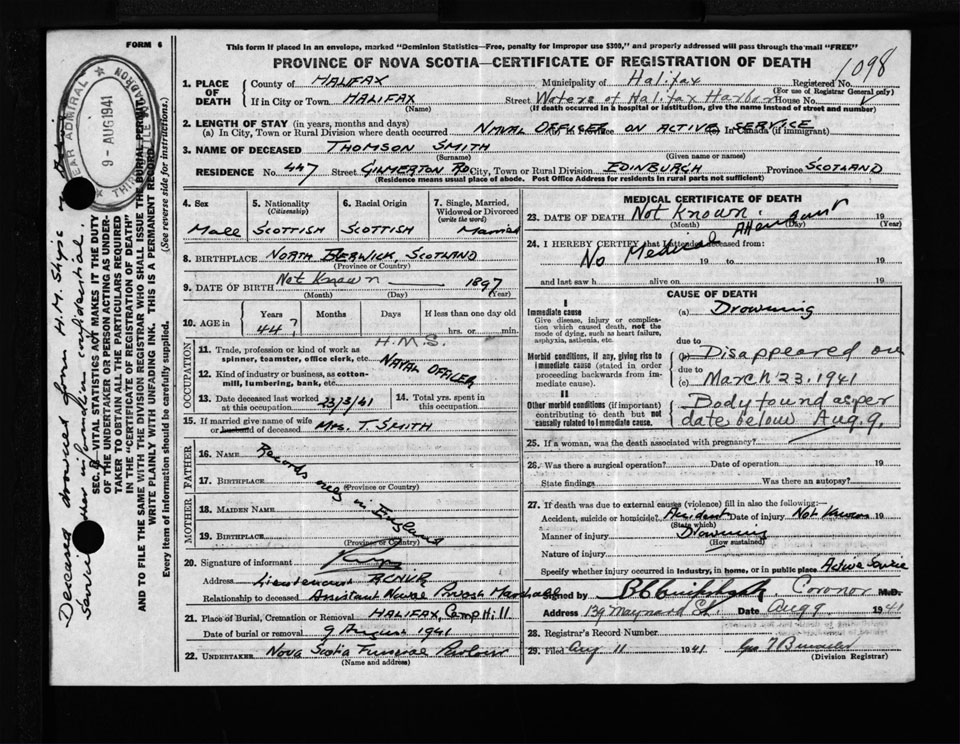 FORM 6
This form if placed in an envelope, marked "Dominion Statistics—Free, penalty for improper use $300," and properly addressed will pass through the mail "FREE"
PROVINCE OF NOVA SCOTIA—CERTIFICATE OF REGISTRATION OF DEATH
1098
1. PLACE OF DEATH
County of HALIFAX Municipality of Halifax Registered No.
(For use of Registrar General only)
If in City or Town HALIFAX Street Waters of Halifax Harbor House No.
(Name) (If death occurred in a hospital or institution, give the name instead of street and number)
2. LENGTH OF STAY (in years, months and days)
(a) In City, Town or Rural Division where death occurred NAVAL OFFICER ON ACTIVE SERVICE in Canada (if immigrant)
3. NAME OF DECEASED THOMSON SMITH
(Surname) (Given name or names)
RESIDENCE No. 447 Street GILMERTON RD City, Town or Rural Division EDINBURGH Province SCOTLAND
(Residence means usual place of abode. Post Office Address for residents in rural parts not sufficient)
4. Sex
Male
5. Nationality (Citizenship)
SCOTTISH
6. Racial Origin
SCOTTISH
7. Single, Married, Widowed or Divorced (write the word)
Married
8. BIRTHPLACE NORTH BERWICK, SCOTLAND
(Province or Country)
9. DATE OF BIRTH Not Known 1897
(Month) (Day) (Year)
10. AGE in Years Months Days If less than one day
44 ? hrs. or min.
OCCUPATION
11. Trade, profession or kind of work as spinner, teamster, office clerk, etc. H.M.S.
NAVAL OFFICER
12. Kind of industry or business, as cotton-mill, lumbering, bank, etc.
13. Date deceased last worked at this occupation 23/3/41
14. Total yrs. spent in this occupation
15. If married give name of wife or husband of deceased Mrs. T. SMITH
FATHER
16. NAME
17. BIRTHPLACE
(Province or Country)
MOTHER
18. MAIDEN NAME
19. BIRTHPLACE
(Province or Country)
Records in England
20. Signature of informant
Address Lieutenant RCNVR
Relationship to deceased Assistant Marshall
21. Place of Burial, Cremation or Removal HALIFAX, Camp Hill
Date of burial or removal 9 August 1941
22. UNDERTAKER Nova Scotia Funeral Parlour
(Name and address)
MEDICAL CERTIFICATE OF DEATH
23. DATE OF DEATH Not Known. 19
(Month) (Day) (Year)
24. I HEREBY CERTIFY that I attended deceased from:
No Medical Attendant
19 to 19
and last saw h alive on 19
CAUSE OF DEATH
I
Immediate cause
Give disease, injury or complication which caused death, not the mode of dying, such as heart failure, asphyxia, asthenia, etc.
(a) Drowning
due to
Morbid conditions, if any, giving rise to immediate cause (stated in order proceeding backwards from immediate cause).
(b) Disappeared on
due to
(c) March 23. 1941
II
Other morbid conditions (if important) contributing to death but not causally related to immediate cause.
Body found as per
date below Aug. 9.
25. If a woman, was the death associated with pregnancy?
26. Was there a surgical operation? Date of operation 19
State findings Was there an autopsy?
27. If death was due to external causes (violence) fill in also the following:—
Accident, suicide or homicide? Accident Date of injury Not Known 19
(State which)
Manner of injury Drowning
(How sustained)
Nature of injury
Specify whether injury occurred in industry, in home, or in public place Active Service
Signed by Coronor M.D.
Address 139 Maynard St. Date Aug 9 1941
28. Registrar's Record Number
29. Filed Aug 11 1941
(Division Registrar)
REAR ADMIRAL
9 - AUG 1941
THIRD
SEC. 9. VITAL STATISTICS ACT MAKES IT THE DUTY
OF THE UNDERTAKER OR PERSON ACTING AS UNDER-
TAKER TO OBTAIN ALL THE PARTICULARS REQUIRED
IN THE "CERTIFICATE OF REGISTRATION OF DEATH"
AND TO FILE THE SAME WITH THE DIVISION REGISTRAR WHO SHALL ISSUE THE BURIAL PERMIT.
WRITE PLAINLY WITH UNFADING INK. THIS IS A PERMANENT RECORD.
Every item of information should be carefully supplied. (See reverse side for instructions.)
Deceased drowned from H.M. Ship
Service information confidential.